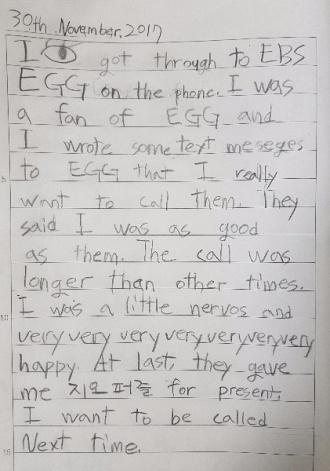 30th. November. 2017
I got through to EBS
EGG on the phone. I was
a fan of EGG and
I wrote some text meseges
5
to EGG that I really
want to call them. They
said I was as good
as them. The call was
longer than other times.
10
I was a little nervos and
very very very very very very very
happy. At last, they gave
me 지오퍼즐 for present.
I want to be called
15
Next time.